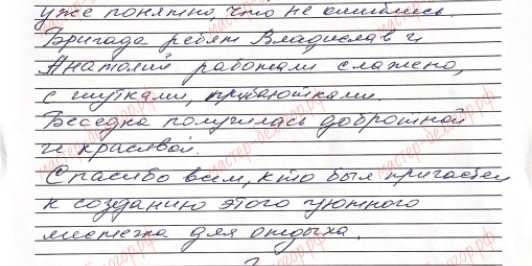 уже понятно что не ошиблись.
Бригада ребят Владислав и
Анатолий работали слажено,
с шутками, прибаютками.
Беседка получилась добротной
и красивой.
Спасибо всем, кто был причастен
к созданию этого уютного
местечка для отдыха.